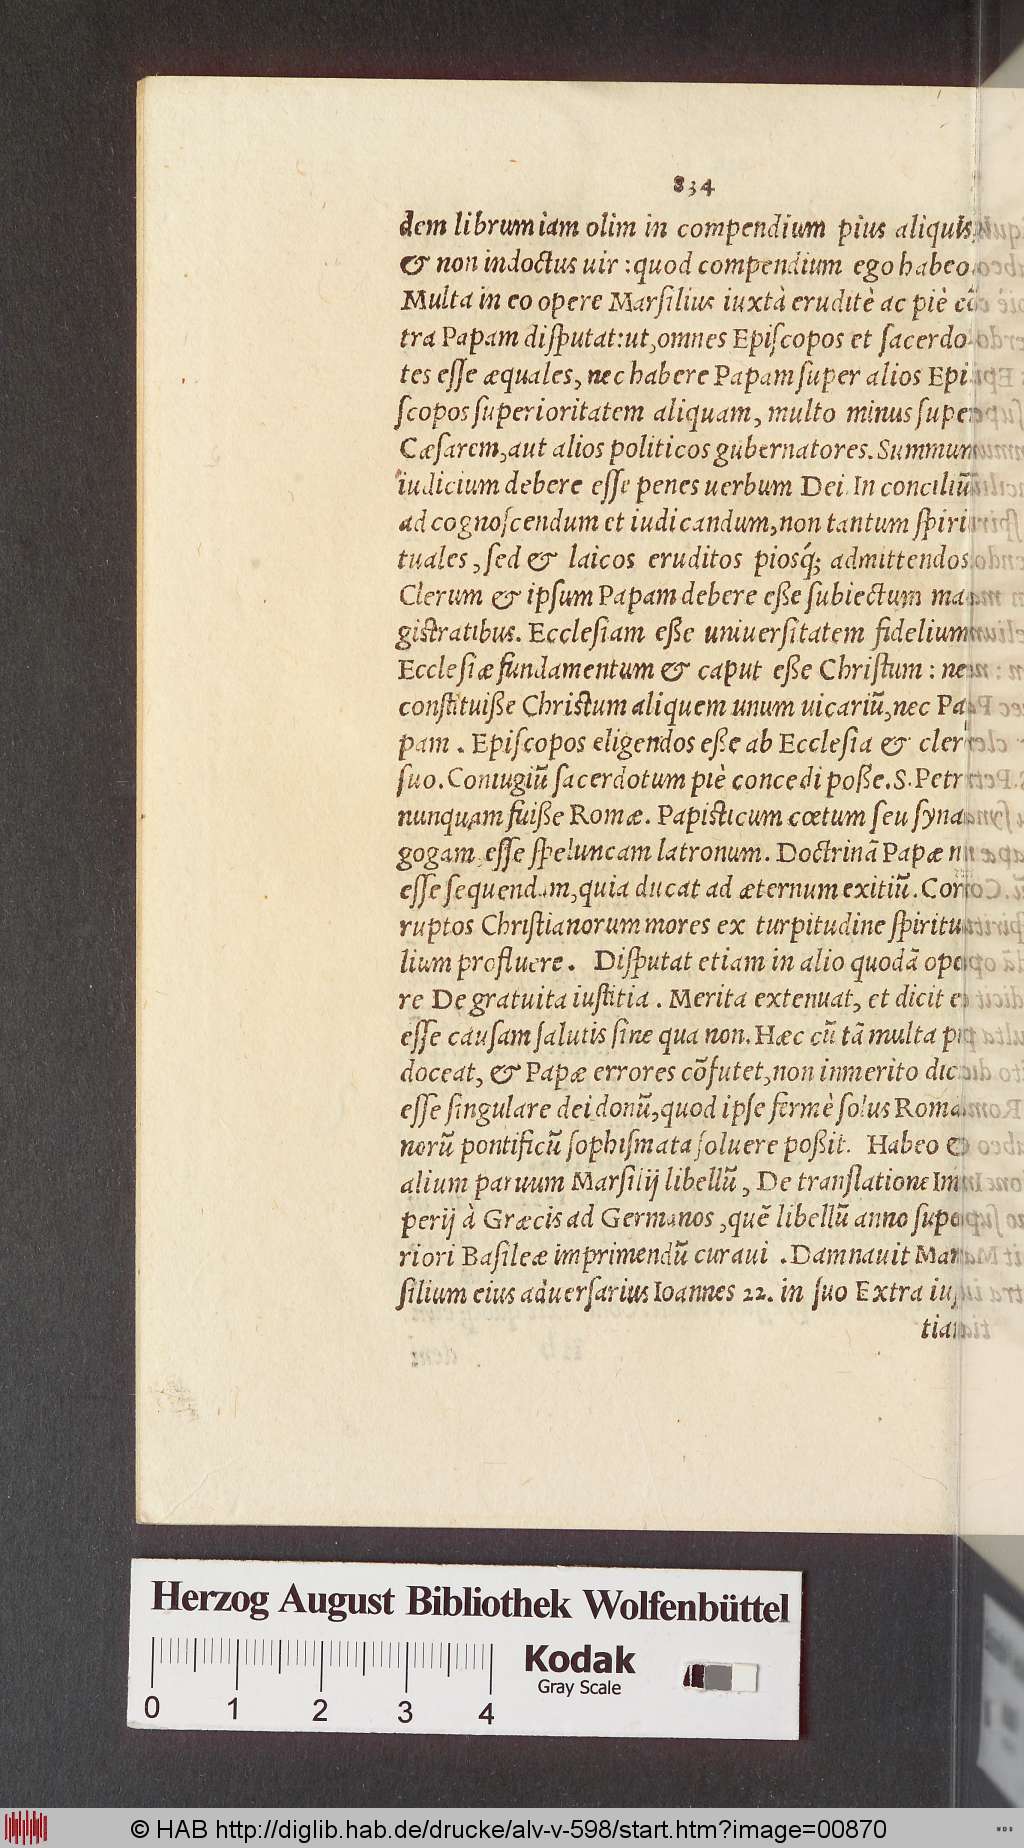 834
dem librum iam olim in compendium pius aliquis,
& non indoctus uir : quod compendium ego habeo.
Multa in eo opere Marſilius iuxtà eruditè ac piè cō
tra Papam diſputat: ut, omnes Epiſcopos et ſacerdo
tes eſſe æquales, nec habere Papam ſuper alios Epi
ſcopos ſuperioritatem aliquam, multo minus ſuper
Cæſarem, aut alios politicos gubernatores. Summum
iudicium debere eſſe penes uerbum Dei. In conciliū
ad cognoſcendum et iudicandum, non tantum ſpiri
tuales, ſed & laicos eruditos pioſq́; admittendos.
Clerum & ipſum Papam debere eße ſubiectum ma
giſtratibus. Eccleſiam eße uniuerſitatem fidelium.
Eccleſiæ fundamentum & caput eße Chriſtum : nec
conſtituiße Chriſtum aliquem unum uicariū, nec Pa
pam. Epiſcopos eligendos eße ab Eccleſia & clero
ſuo. Coniugiū ſacerdotum piè concedi poße. S. Petrū
nunquam fuiße Romæ. Papiſticum cœtum ſeu ſyna
gogam, eſſe ſpeluncam latronum. Doctrinā Papæ nō
eſſe ſequendam, quia ducat ad æternum exitiū. Cor
ruptos Chriſtianorum mores ex turpitudine ſpiritua
lium profluere. Diſputat etiam in alio quodā ope
re De gratuita iuſtitia. Merita extenuat, et dicit
eſſe cauſam ſalutis ſine qua non. Hæc cū tā multa piè
doceat, & Papæ errores cōfutet, non inmerito dico
eſſe ſingulare dei donū, quod ipſe fermè ſolus Roma
norū pontificū ſophiſmata ſoluere poßit. Habeo &
alium paruum Marſilij libellū, De tranſlatione Im
perij à Græcis ad Germanos, quē libellū anno ſupe
riori Baſileæ imprimendū curaui. Damnauit Mar
ſilium eius aduerſarius Ioannes 22. in ſuo Extra iuſ
tiam
Herzog August Bibliothek Wolfenbüttel
Kodak
Gray Scale
0 1 2 3 4
© HAB http://diglib.hab.de/drucke/alv-v-598/start.htm?image=00870